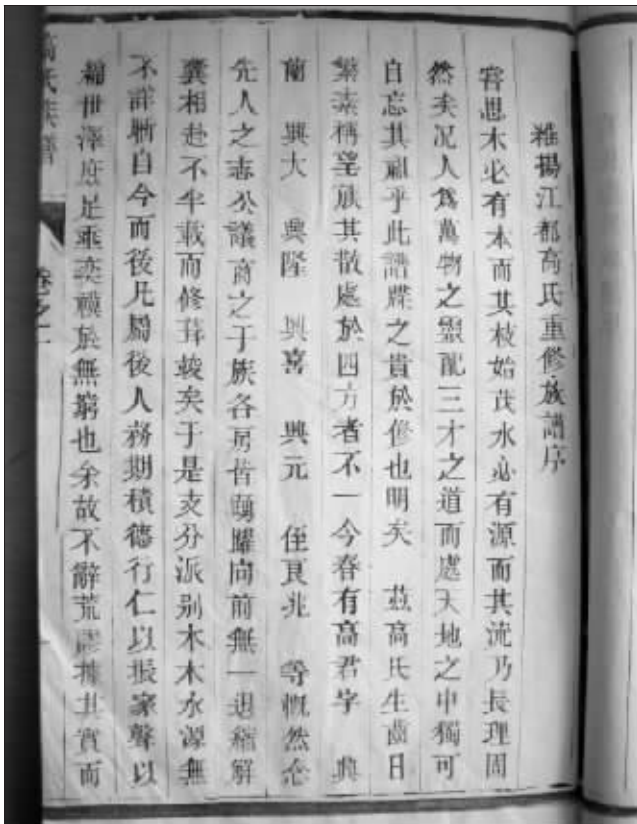 維揚江都高氏重修族譜序
嘗思木必有本而其枝始茂水必有源而其流乃長理固
然矣况人爲萬物之靈配三才之道而處天地之中獨可
自忘其祖乎此譜牒之貴於修也明矣 茲高氏生齒日
繁素稱望族其散處於四方者不一今春有高君字 興
蘭 興大 興隆 興喜 興元 侄良兆 等慨然念
先人之志公議商之于族各房皆踴躍向前無一退縮解
囊相赴不半載而修葺竣矣于是支分派別木本水源無
不詳晰自今而後凡屬後人務期積德行仁以振家聲以
綿世澤庶是垂奕禩於無窮也余故不辭荒謬據其實而
高氏族譜
卷之一